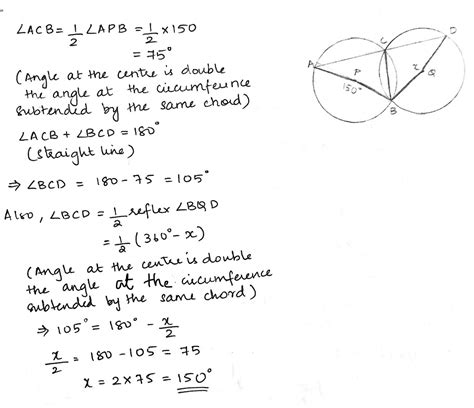 ∠ACB = 1/2 ∠APB = 1/2 × 150
= 75°
(Angle at the centre is double
the angle at the circumference
subtended by the same chord)
∠ACB + ∠BCD = 180°
(straight line)
⇒ ∠BCD = 180 - 75 = 105°
Also, ∠BCD = 1/2 reflex ∠BQD
= 1/2 (360° - x)
(Angle at the centre is double
the angle at the circumference
subtended by the same chord)
⇒ 105° = 180° - x/2
x/2 = 180 - 105 = 75
x = 2×75 = 150°
A
P
150°
C
B
x
Q
D